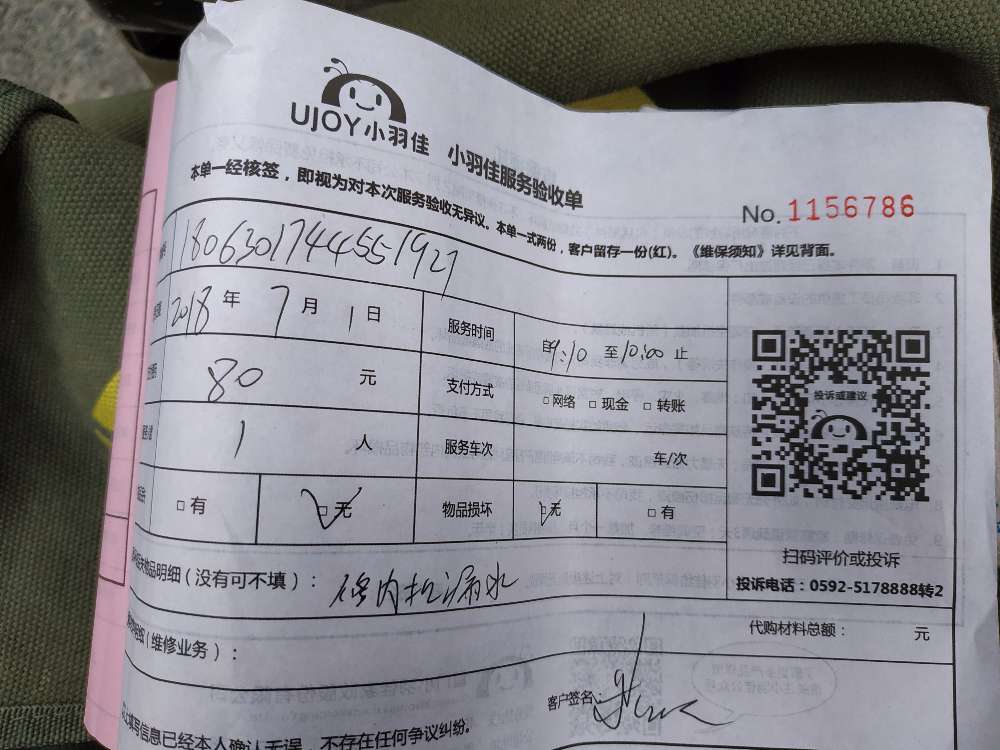 UJOY小羽佳 小羽佳服务验收单
No. 1156786
本单一经核签，即视为对本次服务验收无异议。本单一式两份，客户留存一份(红)。《维保须知》详见背面。
1806301744551927
2018 年 7 月 1 日 服务时间 自 9:10 至 10:00 止
80 元 支付方式 □ 网络 □ 现金 □ 转账
1 人 服务车次 车/次
□ 有 □ 无 物品损坏 □ 无 □ 有
投诉或建议
扫码评价或投诉
投诉电话：0592-5178888转2
物品明细（没有可不填）： 内机漏水
（维修业务）：
代购材料总额： 元
客户签名：
填写信息已经本人确认无误，不存在任何争议纠纷。